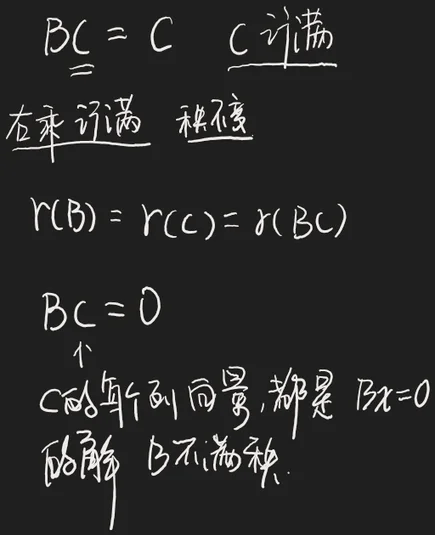 BC = C C 行满
右乘行满 秩不变
r(B) = r(C) = r(BC)
BC = 0
↑
C的每个列向量,都是 Bx=0
的解 B不满秩.